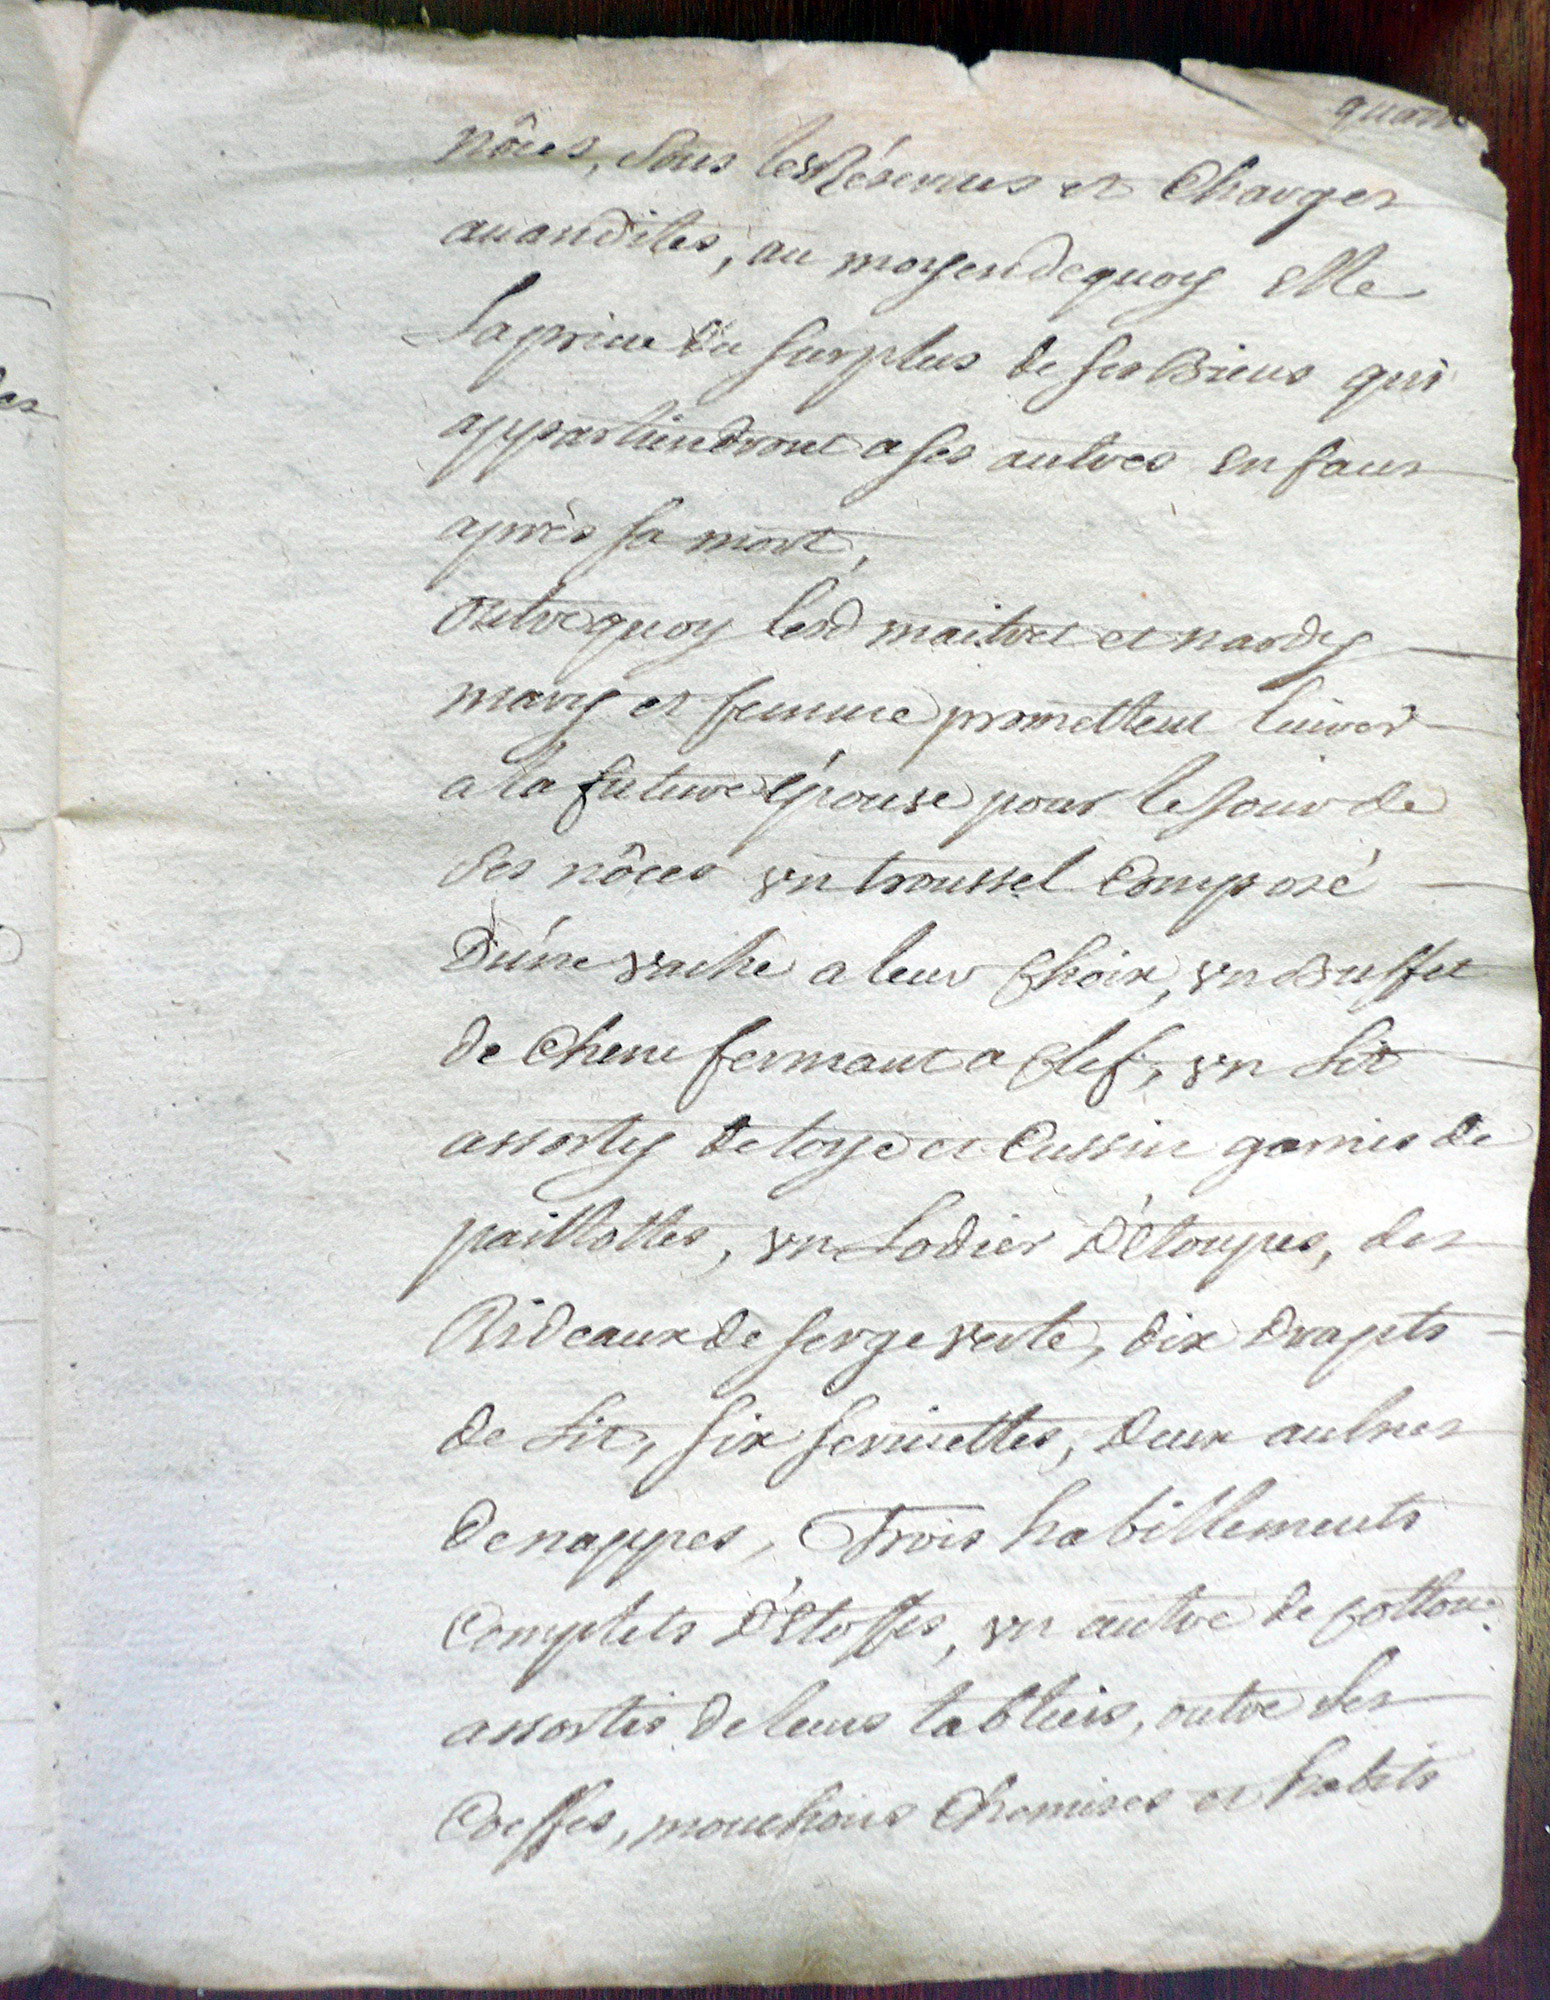 nôces, sous les Réserves et Charges
avandites, au moyen de quoy elle
la prive du surplus de ses Biens qui
appartiendront a ses autres enfans
après sa mort,
Outre quoy lesd maitret et nardy
mary et femme promettent livrer
a la future Epouse pour le jour de
ses nôces un troussel Composé
D'une vache a leur Choix, un Buffet
de Chene fermant a Clef, un Lit
assorty de toye et Cussin garnis de
paillottes, un Lodier D'Etoupes, des
Rideaux de serge verte, dix Drapts
de Lit, six serviettes, Deux aulnes
de nappes, Trois habillements
Complets D'Etoffes, un autre de Cottone
assortis de leurs tabliers, outre Les
Coeffes, mouchoirs Chemises et habits